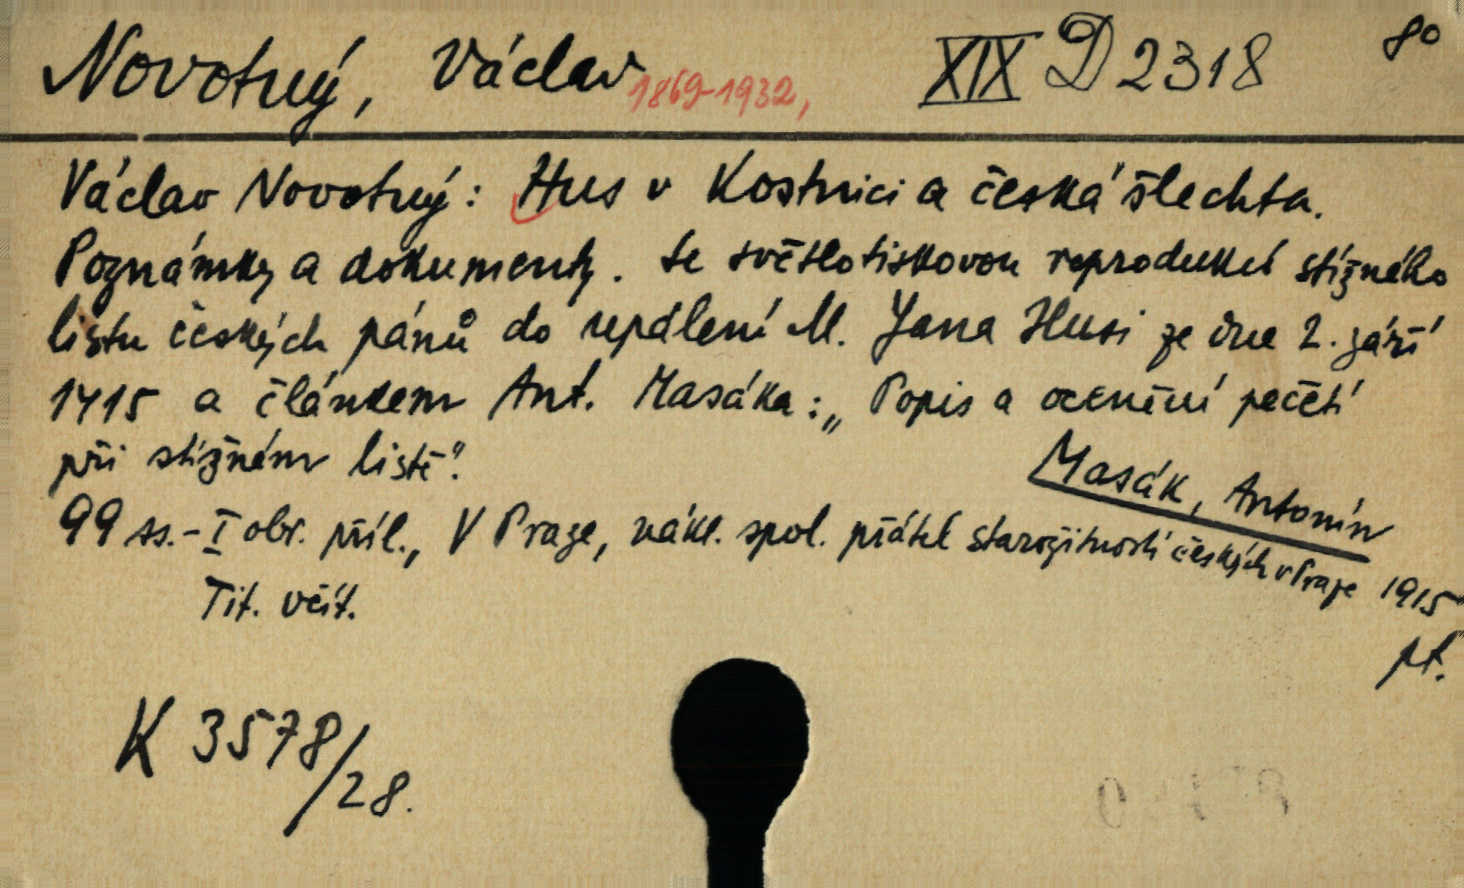 Novotný, Václav 1869-1932, XIX D 2318 8°
Václav Novotný: Hus v Kostnici a česká šlechta.
Poznámky a dokumenty. Se světlotiskovou reprodukcí stížného
listu českých pánů do upálení M. Jana Husi ze dne 2. září
1415 a článkem Ant. Masáka: „Popis a ocenění pečetí
při stížném listě".
Masák, Antonín
99 ss.-I obr. příl., V Praze, nákl. spol. přátel starožitností českých v Praze 1915
Tit. včít.
pt.
K 3578/28.